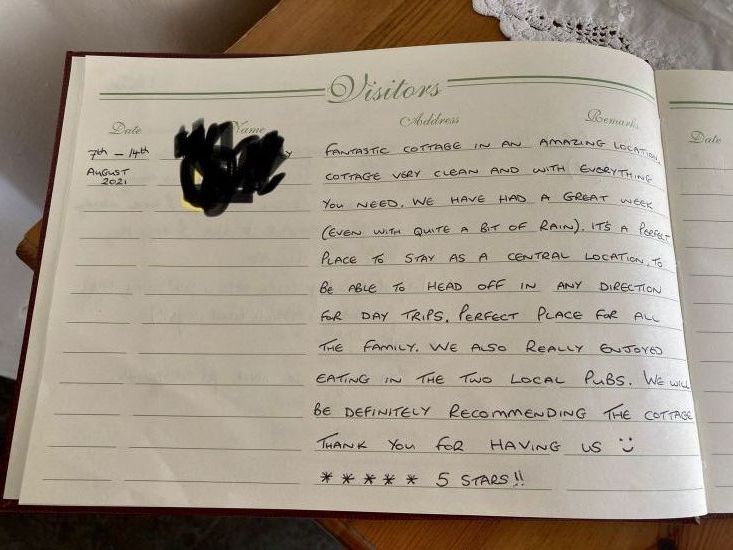 Visitors
Date Name Address Remarks Date
7th - 14th
AUGUST
2021
FANTASTIC COTTAGE IN AN AMAZING LOCATION.
COTTAGE VERY CLEAN AND WITH EVERYTHING
YOU NEED. WE HAVE HAD A GREAT WEEK
(EVEN WITH QUITE A BIT OF RAIN). IT'S A PERFECT
PLACE TO STAY AS A CENTRAL LOCATION, TO
BE ABLE TO HEAD OFF IN ANY DIRECTION
FOR DAY TRIPS. PERFECT PLACE FOR ALL
THE FAMILY. WE ALSO REALLY ENJOYED
EATING IN THE TWO LOCAL PUBS. WE WILL
BE DEFINITELY RECOMMENDING THE COTTAGE
THANK YOU FOR HAVING US :)
* * * * * 5 STARS!!